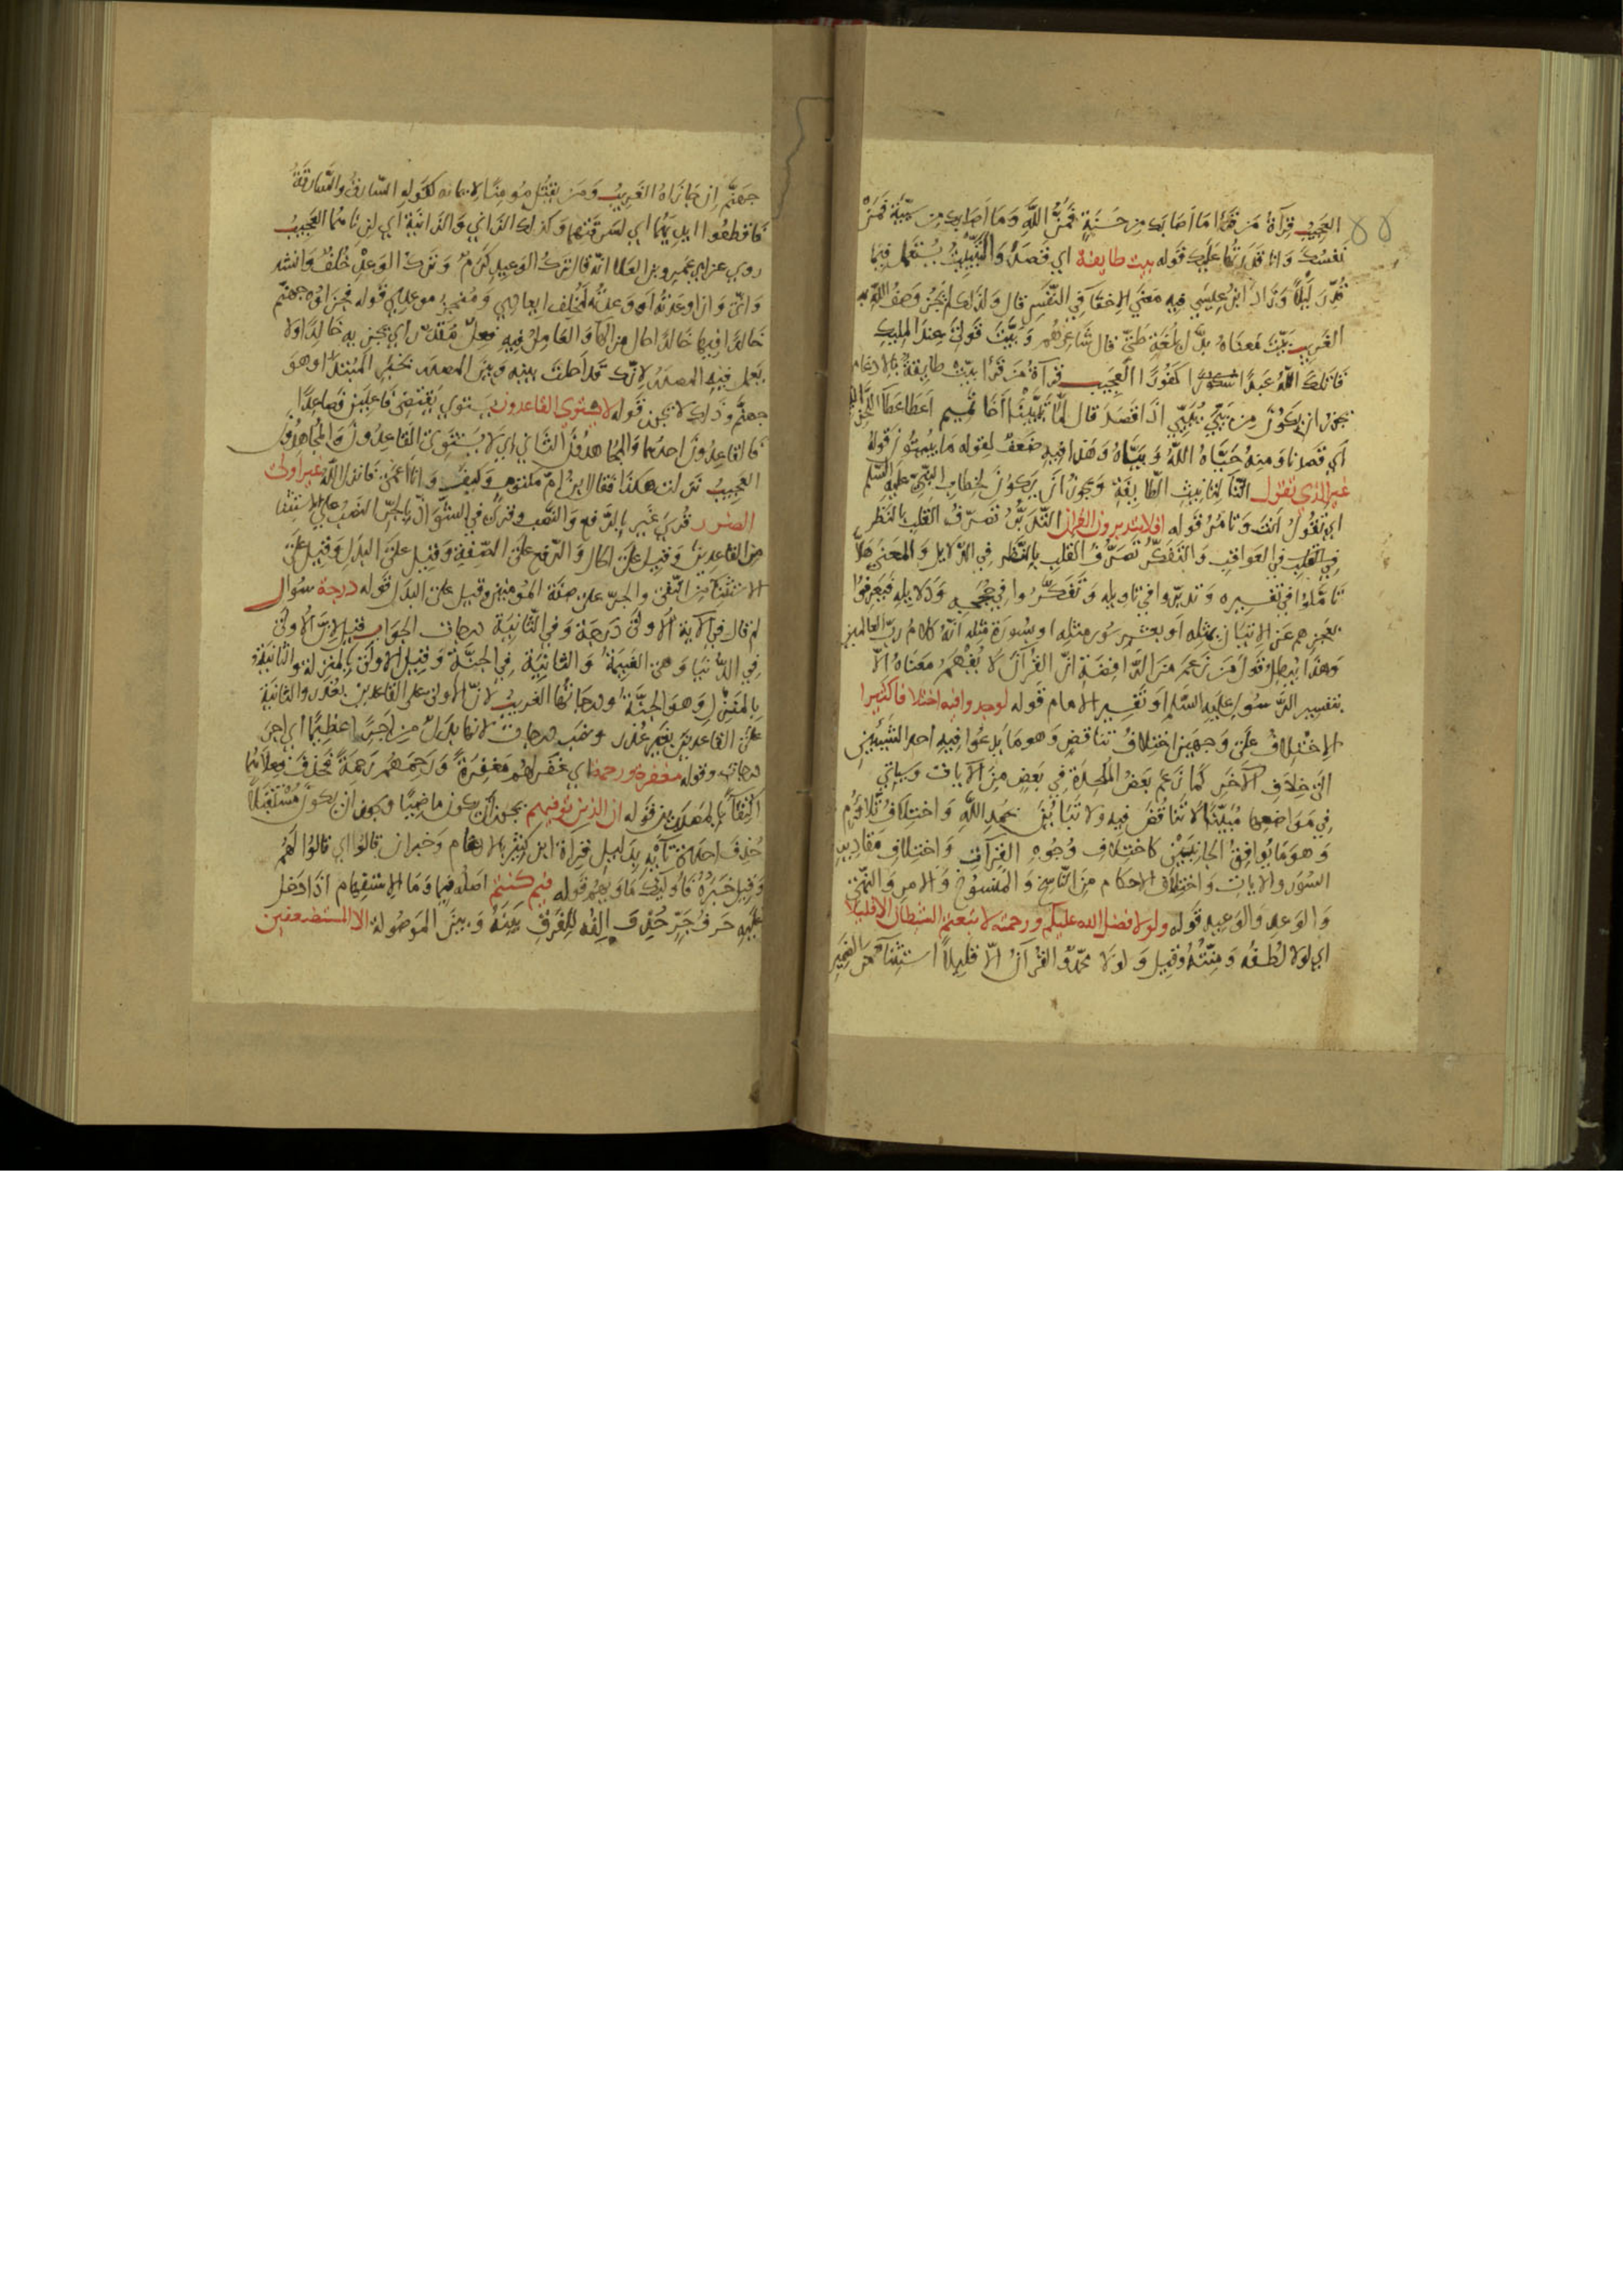 العجيب قرآة من قرأ ما أصابك من حسنة فمن الله وما أصابك من سيئة فمن
نفسك وانا قدرتها عليك قوله بيت طايفة اي قصد والتبييت يستعمل فيما
قدر ليلا وزاد ابن عيسي فيه معني الاخفآ في النفس قال ولذلك لم يجز وصف الله به
الغريب بيت معناه بدل لغة طي قال شاعرهم وبيت قولي عند المليك
قاتلك الله عبدا كفورا العجيب قرآة من قرأ بيت طايفة بالادغام
يجوز ان يكون من بيي يبيي اذا قصد قال لما تبيينا أخا تميم اعطا عطآ
أي قصدنا ومنه حياه الله وبياه وهذا فيه ضعف لقوله ما يبيتون قوله
غير الذي تقول التآ لتانيث الطايفة ويجوز ان يكون لخطاب النبي عليه السلم
اي تقول أنت وتامر قوله افلا يتدبرون القران التدبر تصرف القلب بالنظر
في العواقب والتفكر تصرف القلب بالنظر في الدلايل والمعني هلا
تاملوا في تفسيره وتدبروا في تاويله وتفكروا في حججه ودلايله فيعرفوا
بعجزهم عن الاتيان بمثله او بعشر سور مثله او بسورة مثله انه كلام رب العالمين
وهذا يبطل قول من زعم من الرافضة ان القرآن لا يفهم معناه الا
بتفسير الرسول عليه السلم او تفسير الامام قوله لوجدوا فيه اختلافا كثيرا
الاختلاف على وجهين اختلاف تناقض وهو ما يدعوا فيه احد الشيئين
الى خلاف الآخر كما زعم بعض الملحدة في بعض من الآيات وسياتي
في مواضعها مبينا لا تناقض فيه ولا تباين بحمد الله واختلاف تلاؤم
وهو ما يوافق الجانبين كاختلاف وجوه القرآت واختلاف مقادير
السور والايات واختلاف الاحكام من الناسخ والمنسوخ والامر والنهي
والوعد والوعيد قوله ولولا فضل الله عليكم ورحمته لاتبعتم الشيطان الا قليلا
اي لولا لطفه ومنته وقيل ولولا محمد والقرآن الا قليلا استثنآ من الضمير
جهنم ان جازاه الغريب ومن يقتل مومنا لايمانه كقوله السارق والسارقة
فاقطعوا ايديهما اي لسرقتهما وكذلك الزاني والزانية أي لزناهما العجيب
روي عن ابي عمرو بن العلا انه قال ترك الوعيد كرم وترك الوعد خلف وانشد
واني وان اوعدته او وعدته لمخلف ايعادي ومنجز موعدي قوله فجزاؤه جهنم
خالدا فيها خالدا حال من الهآ والعامل فيه فعل مقدر اي يجزيه خالدا ولا
يعمل فيه المصدر لانك قد أحلت بينه وبين المصدر بخبر المبتدا وهو
جهنم وذلك لا يجوز قوله لا يستوي القاعدون يستوي يقتضي فاعلين فصاعدا
فالقاعدون احدهما والمجاهدون الثاني اي لا يستوي القاعدون والمجاهدون
العجيب نزلت هكذا فقال ابن ام مكتوم وكيف وانا أعمى فانزل الله غير اولى
الضرر قرئ غير بالرفع والنصب وقرئ في الشواذ بالجر النصب على الاستثنا
من القاعدين وقيل على الحال والرفع على الصفة وقيل على البدل وقيل على
الاستثنآ من النفي والجر على صفة المؤمنين وقيل على البدل قوله درجة سؤال
لم قال في الآية الاولى درجة وفي الثانية درجات الجواب قيل لان الاولى
في الدنيا وهي الغنيمة والثانية في الجنة وقيل الاولى بالمنزلة والثانية
بالمنزل وهو الجنة ودرجاتها الغريب لان الأولى على القاعدين بعذر والثانية
على القاعدين بغير عذر ونصب درجات لانها بدل من اجرا عظيما اي اجر
درجات وقوله مغفرة ورحمة اي غفر لهم مغفرة ورحمهم رحمة فحذف فعلاهما
اكتفآ بالمصدرين قوله ان الذين توفيهم يجوز أن يكون ماضيا ويجوز ان يكون مستقبلا
حذف احدى تآيه بدليل قراة ابن كثير بالادغام وخبر ان قالوا اي قالوا لهم
وقيل خبره فأوليك ماويهم قوله فيم كنتم اصله فيما وما الاستفهام اذا دخل
عليه حرف جر حذف الفه للفرق بينه وبين الموصولة الا المستضعفين